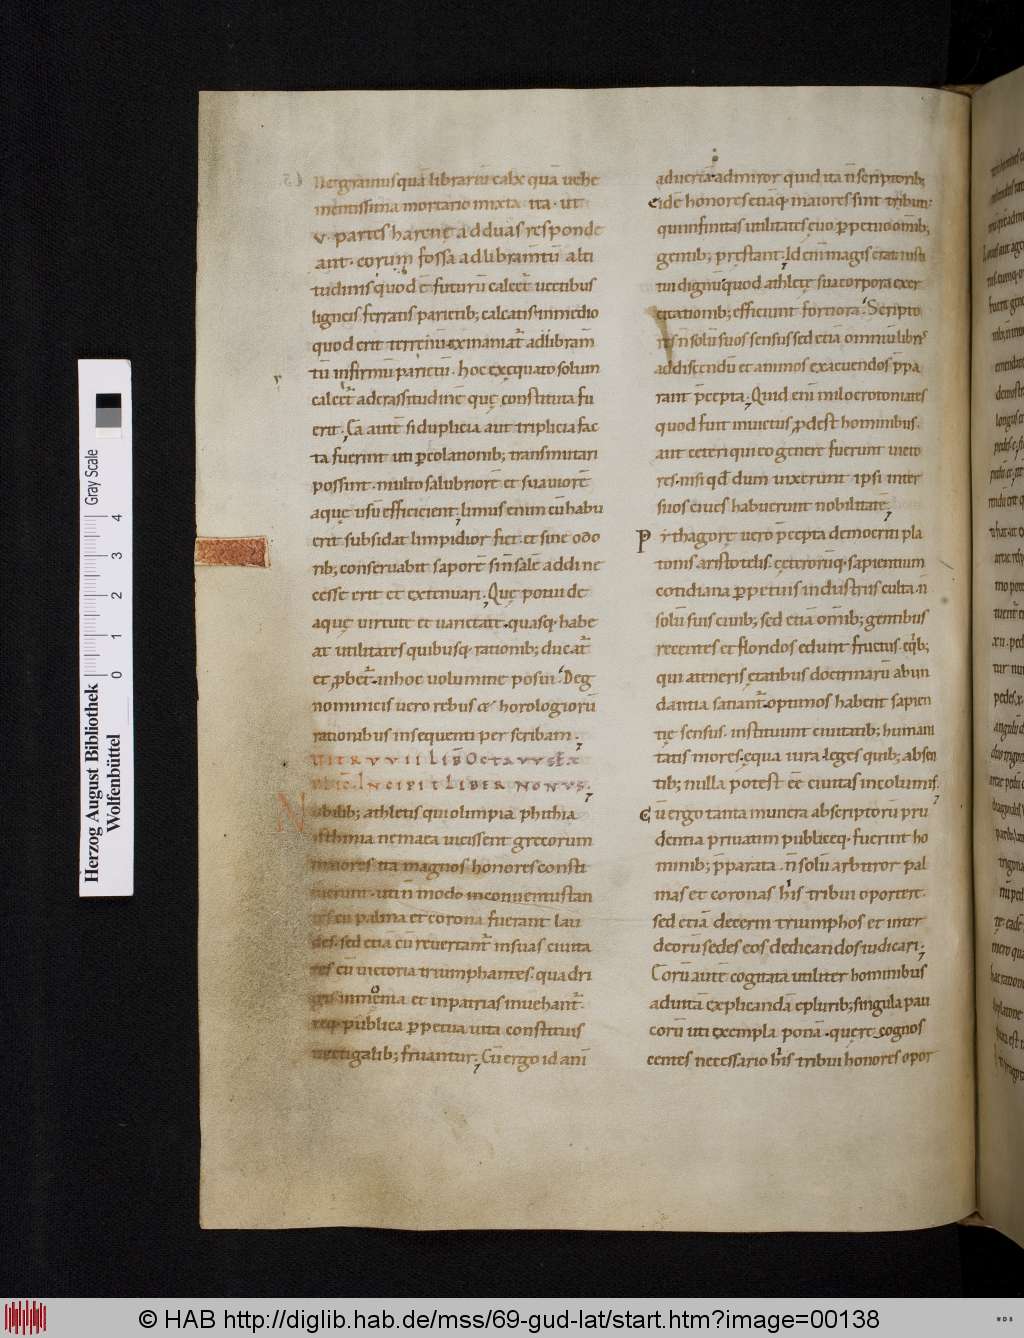 ne gramus quā librariū calx quā uehe
mentissima mortario mixta ita ut
v. partes harenę ad duas responde
ant. eorum fossa ad librām̄tū alti
tudinis quod ē futurū calcet᷑ uectibus
ligneis ferratis parietib; calcatis in medio
quod erit terrenū exinaniat᷑ ad libram̄
tū infirmū parietū. hoc exęquato solum
calcet᷑ ad crassitudinē quę constituta fu
erit. Ea autē si duplicia aut triplicia fac
ta fuerint uti ꝑcolationib; transmutari
possint. multo salubriorē et suauiorē
aquę usū efficient; limus enim cū habu
erit subsidat limpidior fiet. et sine odo
rib; conseruabit saporē sin̄ salē addi ne
cesse erit et extenuari. Quę potui de
aquę uirtute et uarietate. quasq; habe
at utilitates quibusq; rationib; ducat᷑
et ꝓbet᷑. in hoc uolumine posui. De g
nominicis uero rebus & horologiorū
rationibus insequenti perscribam.
VITRVVII LIB̄ OCTAVVS EX
PLIC̄. INCIPIT LIBER NONVS.
Nobilib; athletis qui olimpia phithia
isthmia nemaea uicissent grecorum
maiores ita magnos honores consti
tuerunt. uti n̄ modo in conuentu stan
tes cū palma et corona fuerant lau
des. sed etiā cū reuertant᷑ in suas ciuita
tes cū uictoria triumphantes. quadri
gis in męnia et in patrias inuehant᷑.
req; publica ꝑpetua uita constitutis
uectigalib; fruantur. Cū ergo id ani
aduertā admiror quid ita n̄ scriptorib;
eidē honores etiāq; maiores sint tributi.
qui infinitas utilitates ęuo ꝑpetuo om̄ib;
gentib; pręstant. Id eni magis erat insti
tui dignū quod athletę sua corpora exer
citationib; efficiunt fortiora. Scripto
res n̄ solū suos sensus sed etiā omniū libris
ad discendū et animos exacuendos p̄pa
rant p̄cepta. Quid eni milo crotoniates
quod fuit inuictus ꝓdest hominibus.
aut ceteri qui eo genere fuerunt uicto
res. nisi qđ dum uixerunt ipsi inter
suos ciues habuerunt nobilitatē.
Pythagorę uero p̄cepta democriti pla
tonis aristotelis. ceterorūq; sapientium
cotidiana ꝑpetuis industriis culta. n̄
solū suis ciuib; sed etiā om̄ib; gentibus
recentes et floridos edunt fructus. eq̄b;
qui a teneris ętatibus doctrinarū abun
dantia satiant᷑. optimos habent sapien
tię sensus. instituunt ciuitatib; humani
tatis mores. ęqua iura. leges quib; absen
tib; nulla potest ēē ciuitas incolumis.
Cū ergo tanta munera ab scriptorū pru
dentia priuatim publiceq. fuerint ho
minib; p̄parata. n̄ solū arbitror pal
mas et coronas his tribui oportere.
sed etiā decerni triumphos et inter
deorū sedes eos dedicandos iudicari.
Eorū autē cogitata utiliter hominibus
ad uitā explicandā e plurib; singula pau
corū uti exempla ponā. quę recognos
centes necessario his tribui honores opor
Herzog August Bibliothek
Wolfenbüttel
Gray Scale
0 1 2 3 4
© HAB http://diglib.hab.de/mss/69-gud-lat/start.htm?image=00138